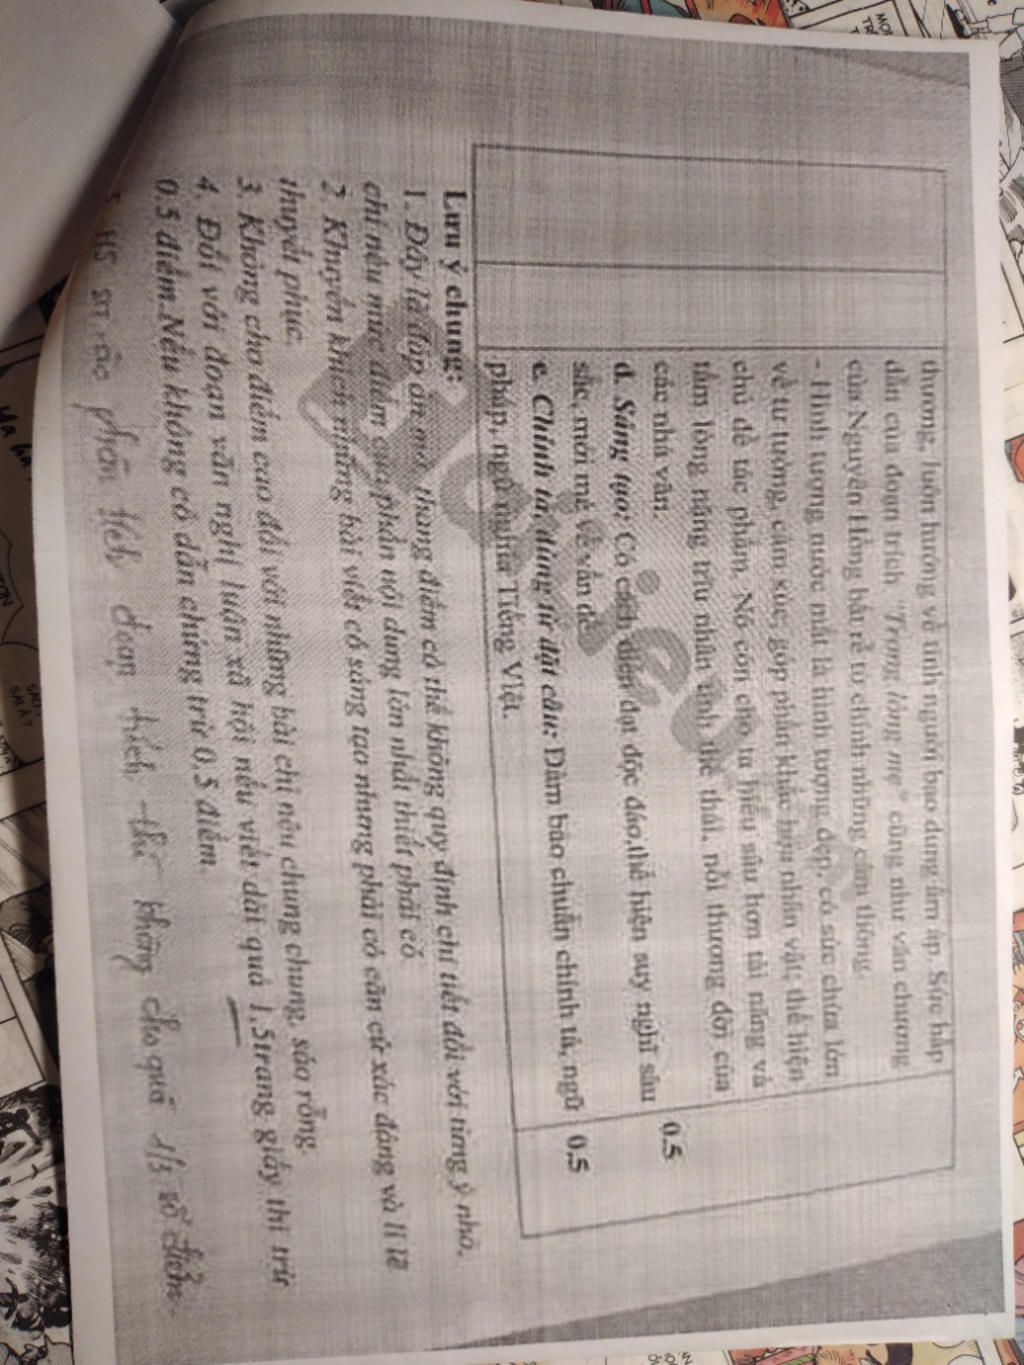 thương, luôn hướng về tình người bao dung ấm áp. Sức hấp
dẫn của đoạn trích "Trong lòng mẹ" cũng như văn chương
của Nguyên Hồng bắt rễ từ chính những cảm thông.
- Hình tượng nước mắt là hình tượng đẹp, có sức chứa lớn
về tư tưởng, cảm xúc, góp phần khắc họa nhân vật, thể hiện
chủ đề tác phẩm. Nó còn cho ta hiểu sâu hơn tài năng và
tấm lòng nặng trĩu nhân tình thế thái, nỗi thương đời của
các nhà văn.
d. Sáng tạo: Có cách diễn đạt độc đáo,thể hiện suy nghĩ sâu
sắc, mới mẻ về vấn đề. 0.5
e. Chính tả, dùng từ đặt câu: Đảm bảo chuẩn chính tả, ngữ
pháp, ngữ nghĩa Tiếng Việt. 0.5
Lưu ý chung:
1. Đây là đáp án mở, thang điểm có thể không quy định chi tiết đối với từng ý nhỏ,
chỉ nêu mức điểm của phần nội dung lớn nhất thiết phải có.
2. Khuyến khích những bài viết có sáng tạo nhưng phải có căn cứ xác đáng và lí lẽ
thuyết phục.
3. Không cho điểm cao đối với những bài chỉ nêu chung chung, sáo rỗng.
4. Đối với đoạn văn nghị luận xã hội nếu viết dài quá 1,5trang giấy thi trừ
0.5 điểm.Nếu không có dẫn chứng trừ 0,5 điểm.
5. HS phân tích đoạn trích thì không cho quá 1/3 số điểm.